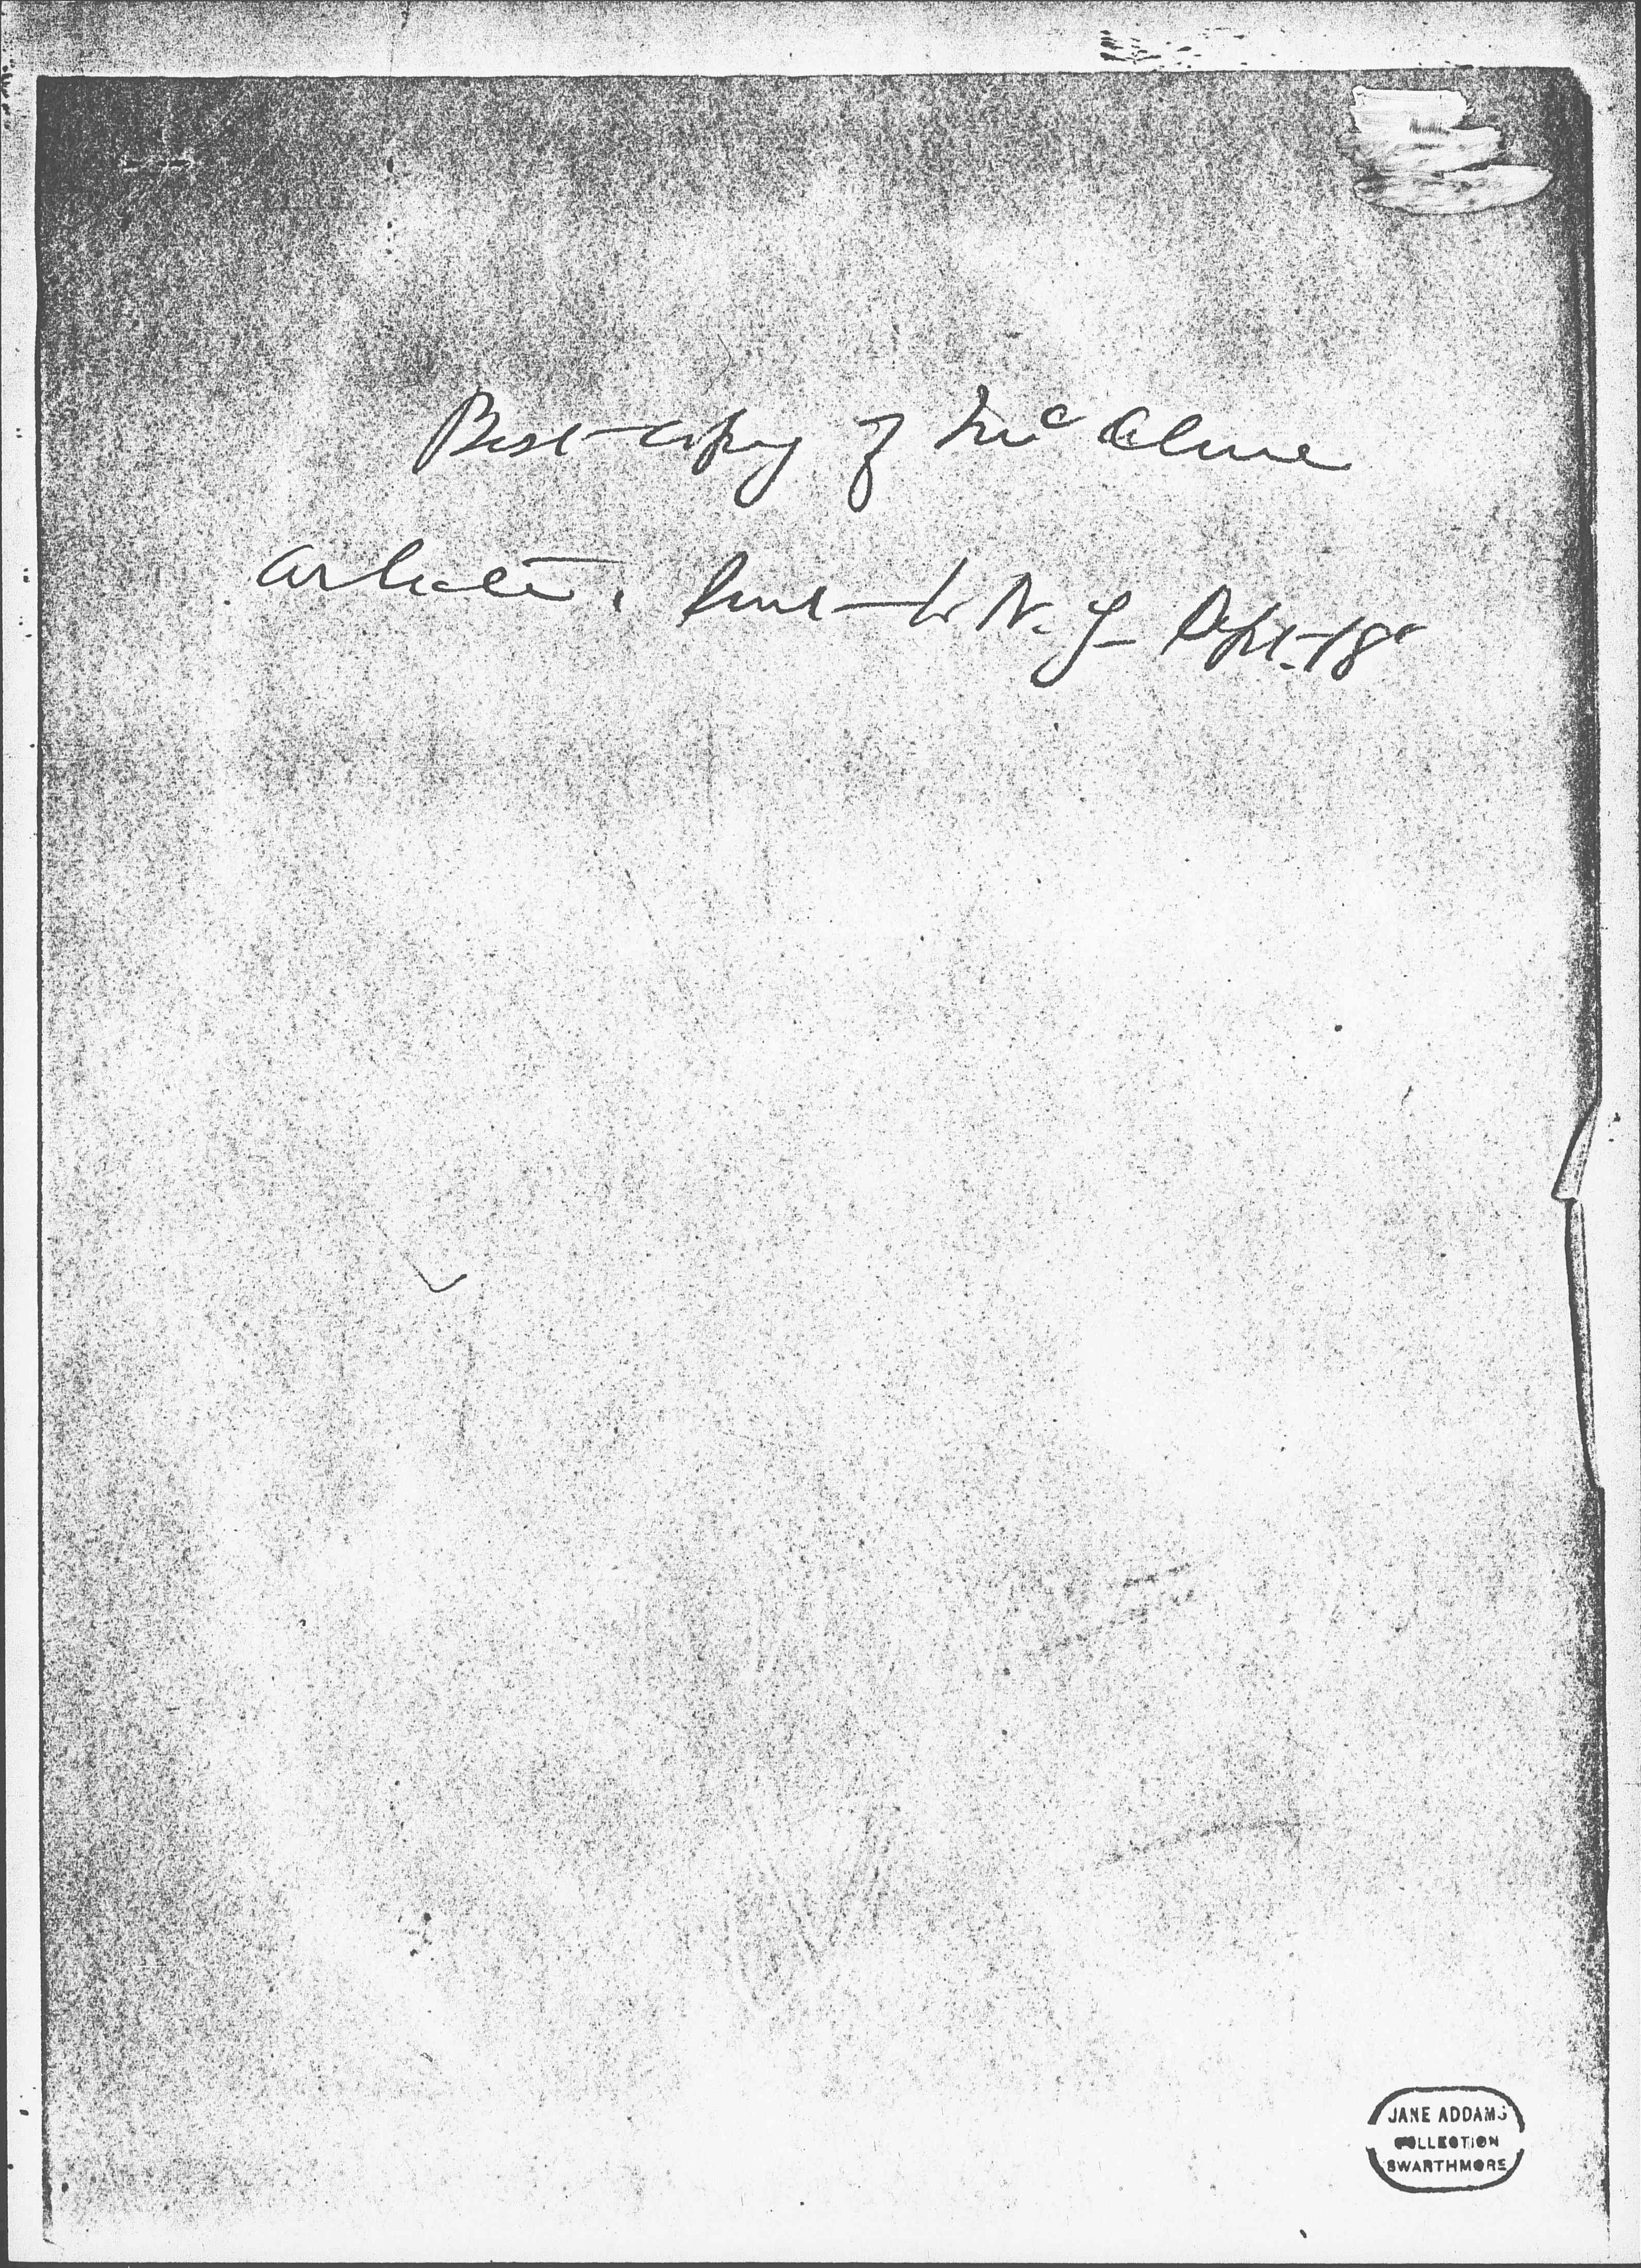 Best copy of Mc Clure
articles. Sent to N.Y. Sept. 18"
JANE ADDAMS
COLLECTION
SWARTHMORE